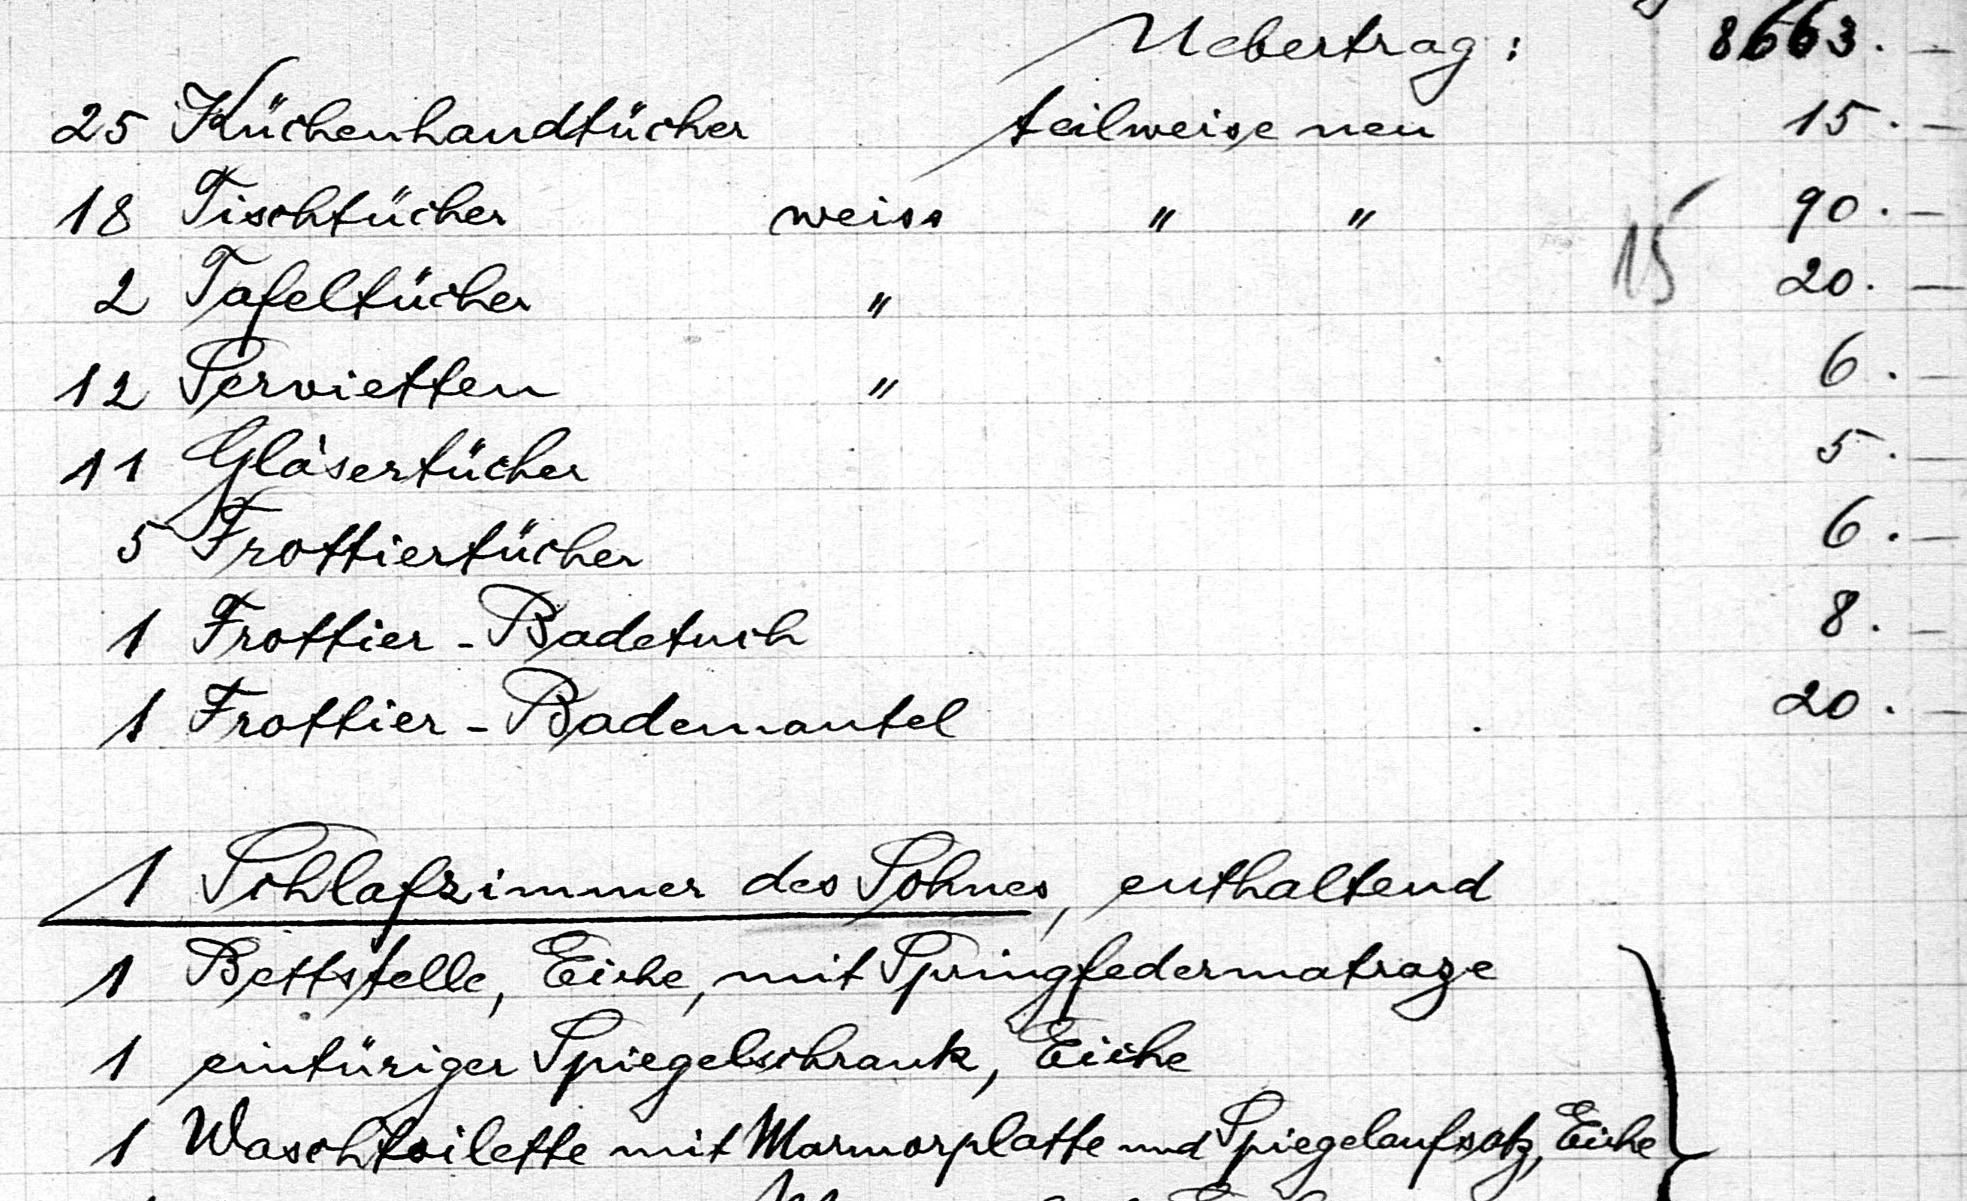 Uebertrag: 8663.—
25 Küchenhandtücher teilweise neu 15.—
18 Tischtücher weiss " " 90.—
15
2 Tafeltücher " 20.—
12 Servietten " 6.—
11 Gläsertücher 5.—
5 Frottiertücher 6.—
1 Frottier-Badetuch 8.—
1 Frottier-Bademantel 20.—
1 Schlafzimmer des Sohnes, enthaltend
1 Bettstelle, Eiche, mit Springfedermatraze
1 eintüriger Spiegelschrank, Eiche
1 Waschtoilette mit Marmorplatte und Spiegelaufsatz, Eiche